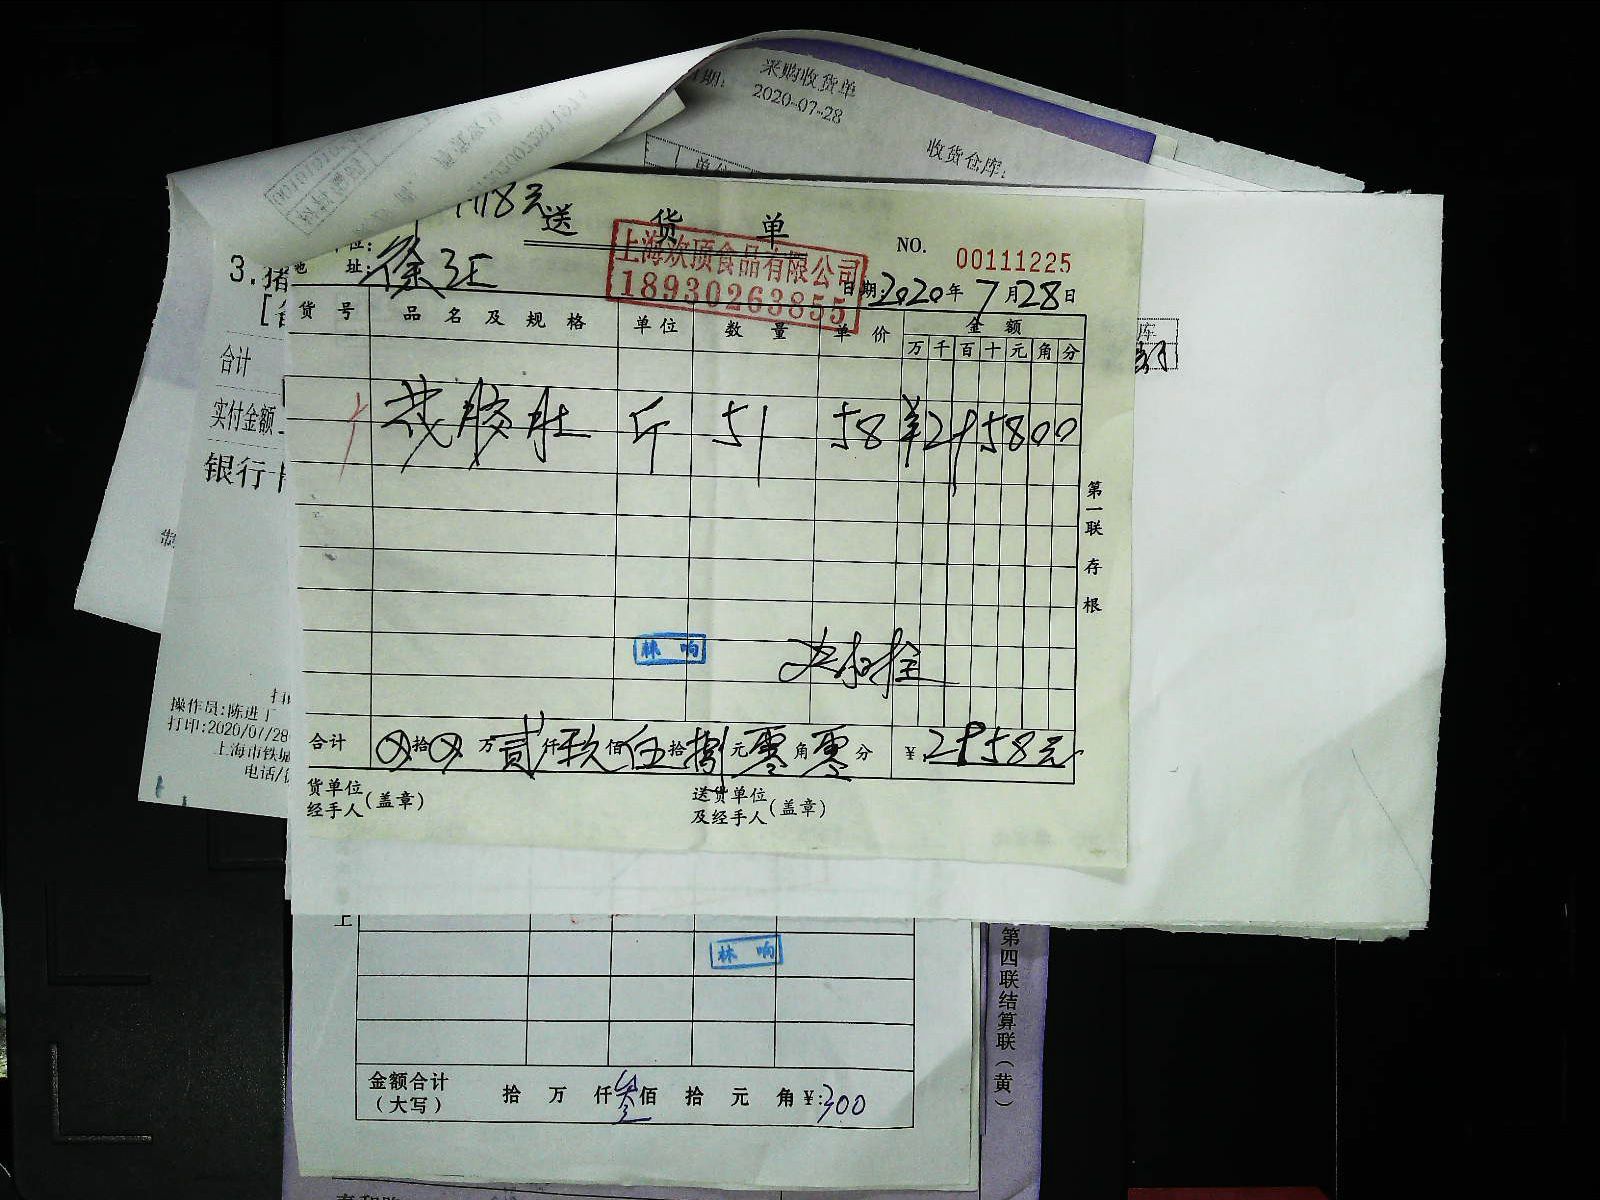 采购收货单
期: 2020-07-28
收货仓库:
单位
18元
送 货 单
NO. 00111225
上海欢顶食品有限公司
18930263855
位:
址: 徐汇
日期: 2020年7月28日
货号 品名及规格 单位 数量 单价 金额
万 千 百 十 元 角 分
花胶肚 斤 51 58 ¥295800
第一联 存根
林响
合计 ⊗拾⊗万贰仟玖佰伍拾捌元零角零分 ¥:2958元
货单位
经手人(盖章)
送货单位
及经手人(盖章)
3.猪
合计
实付金额
银行
制
操作员:陈进
打印:2020/07/28
上海市铁城
电话/
库
林响
金额合计
(大写)
拾 万 仟叁佰 拾 元 角¥:300
第四联结算联(黄)